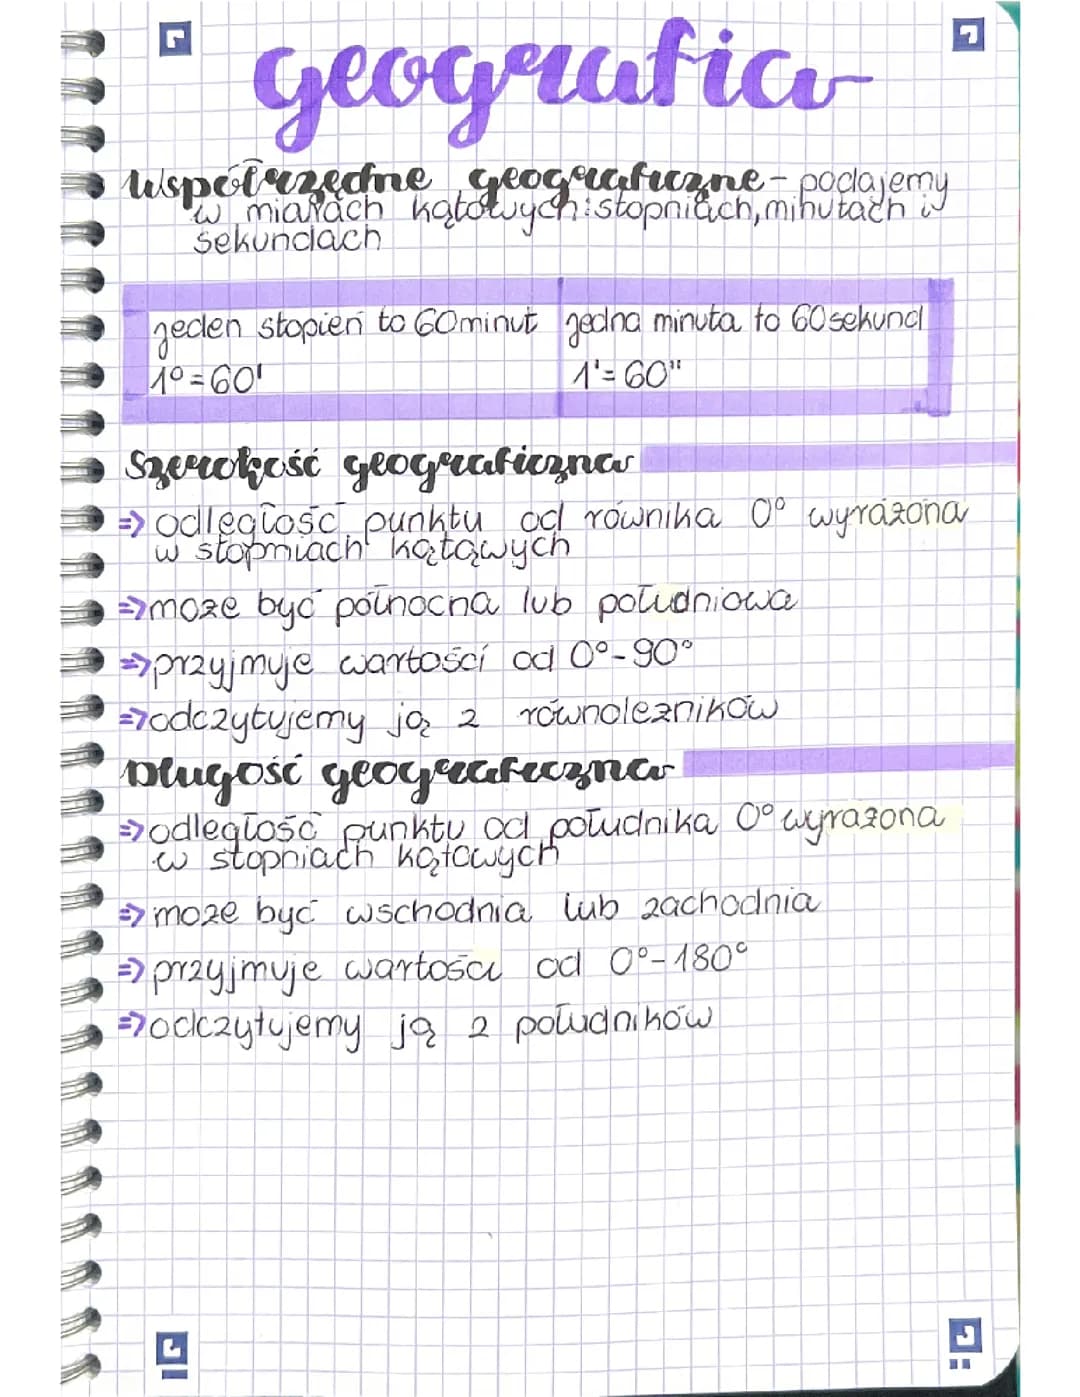 geografia
Współrzędne geograficzne - podajemy
w miarach kątowych: stopniach, minutach i
sekundach
jeden stopień to 60 minut
1° = 60'
jedna minuta to 60 sekund
1' = 60"
Szerokość geograficzna
=> odległość punktu od równika 0° wyrażona
w stopniach kątowych
=> może być północna lub południowa
=> przyjmuje wartości od 0°-90°
=> odczytujemy ją z równoleżników
Długość geograficzna
=> odległość punktu od południka 0° wyrażona
w stopniach kątowych
=> może być wschodnia lub zachodnia
=> przyjmuje wartości od 0°-180°
=> odczytujemy ją z południków